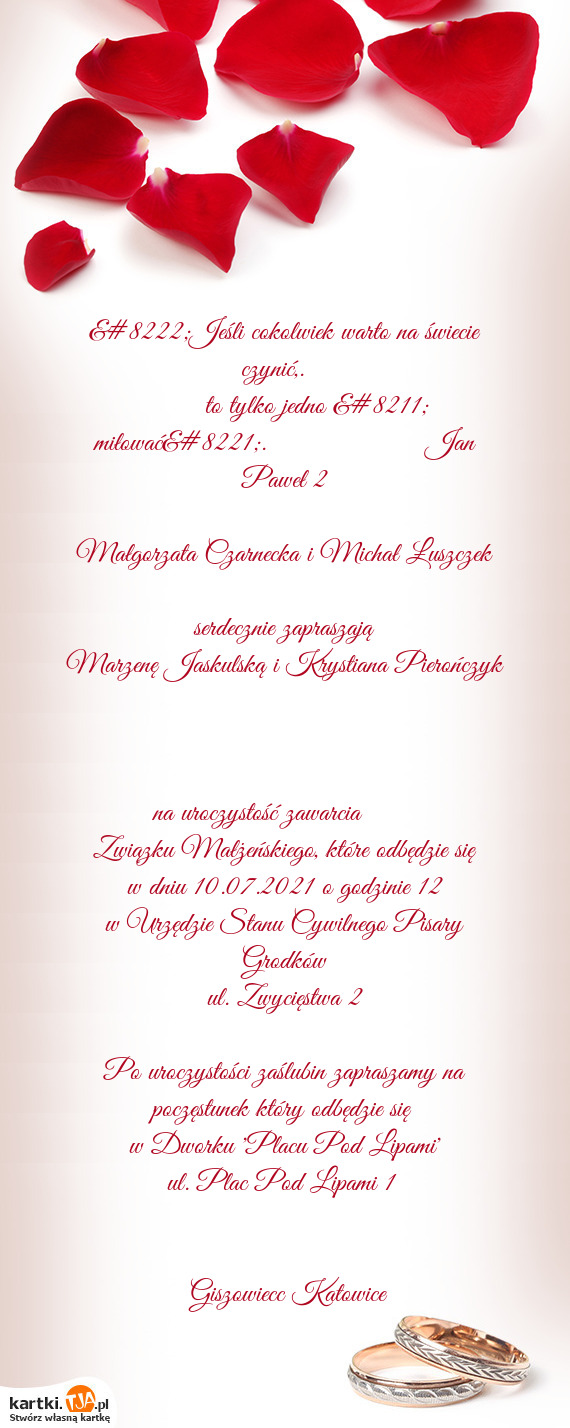 &#8222;Jeśli cokolwiek warto na świecie
czynić,.
to tylko jedno &#8211;
miłować&#8221;. Jan
Paweł 2
Małgorzata Czarnecka i Michał Łuszczek
serdecznie zapraszają
Marzenę Jaskulską i Krystiana Pierończyk
na uroczystość zawarcia
Związku Małżeńskiego, które odbędzie się
w dniu 10.07.2021 o godzinie 12
w Urzędzie Stanu Cywilnego Pisary
Grodków
ul. Zwycięstwa 2
Po uroczystości zaślubin zapraszamy na
poczęstunek który odbędzie się
w Dworku 'Placu Pod Lipami'
ul. Plac Pod Lipami 1
Giszowiecc Katowice
kartki.TJA.pl
Stwórz własną kartkę